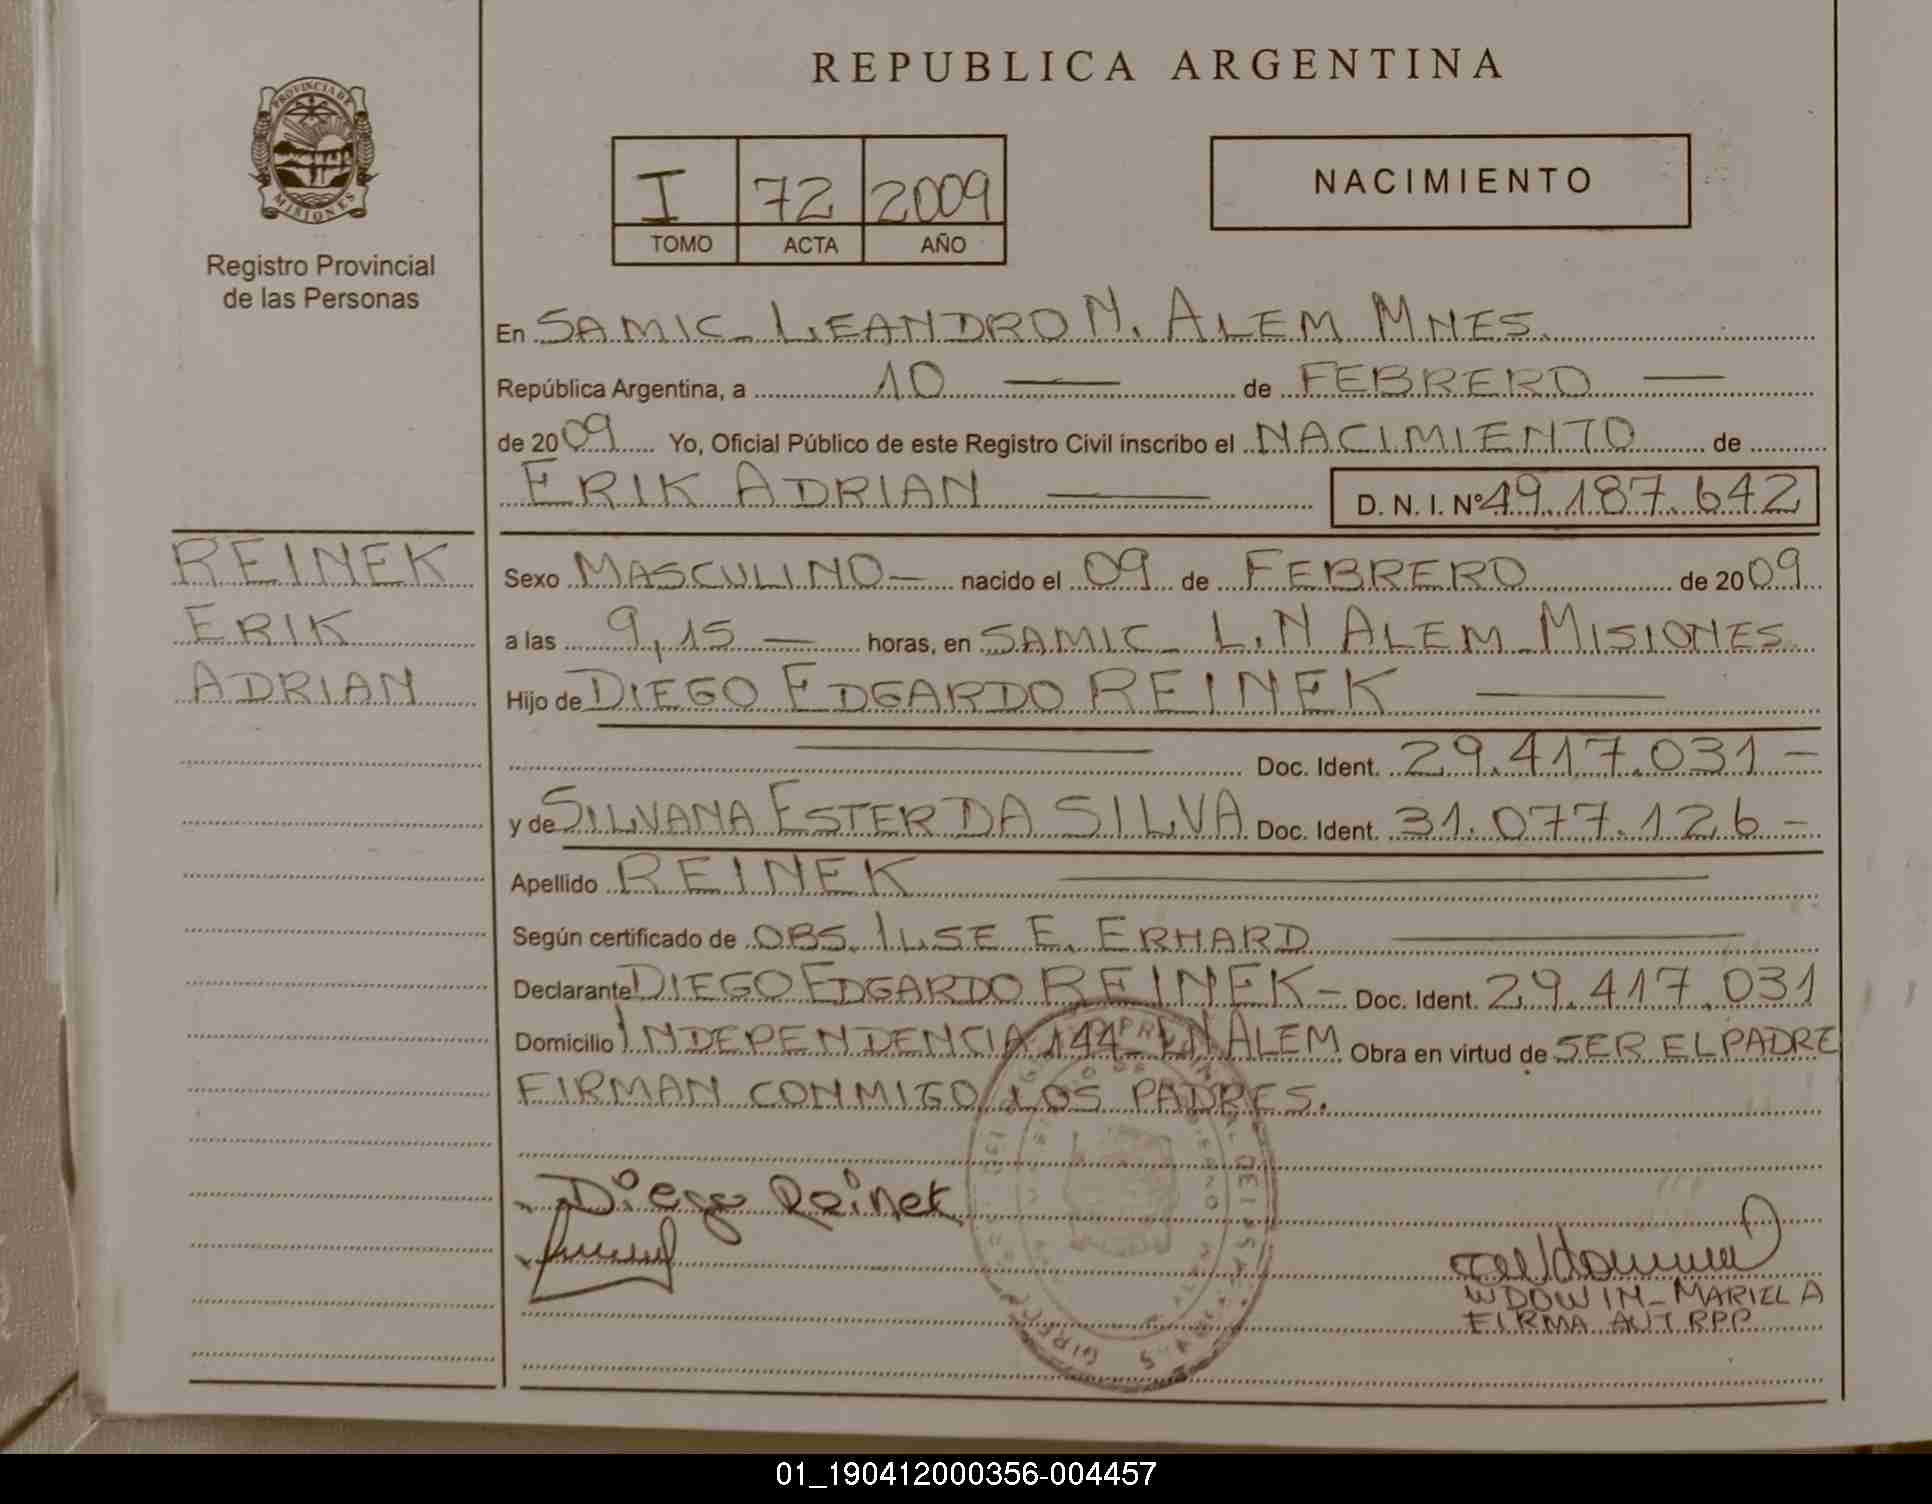 REPUBLICA ARGENTINA
PROVINCIA DE MISIONES
Registro Provincial
de las Personas
I 72 2009
TOMO ACTA AÑO
NACIMIENTO
En SAMIC - LEANDRO N. ALEM MNES.
República Argentina, a 10 — de FEBRERO —
de 2009 Yo, Oficial Público de este Registro Civil inscribo el NACIMIENTO de
ERIK ADRIAN — D. N. I. Nº 49.187.642
REINEK
ERIK
ADRIAN
Sexo MASCULINO — nacido el 09 de FEBRERO de 2009
a las 9,15 — horas, en SAMIC - L.N ALEM - MISIONES
Hijo de DIEGO EDGARDO REINEK —
— Doc. Ident. 29.417.031 -
y de SILVANA ESTER DA SILVA Doc. Ident. 31.077.126 -
Apellido REINEK —
Según certificado de OBS. ILSE E. ERHARD —
Declarante DIEGO EDGARDO REINEK - Doc. Ident. 29.417.031
Domicilio INDEPENDENCIA 144 - LN ALEM Obra en virtud de SER EL PADRE
FIRMAN CONMIGO LOS PADRES.
Diego Reinek
WDOWIN - MARIELA
FIRMA AUT RPP
01_190412000356-004457